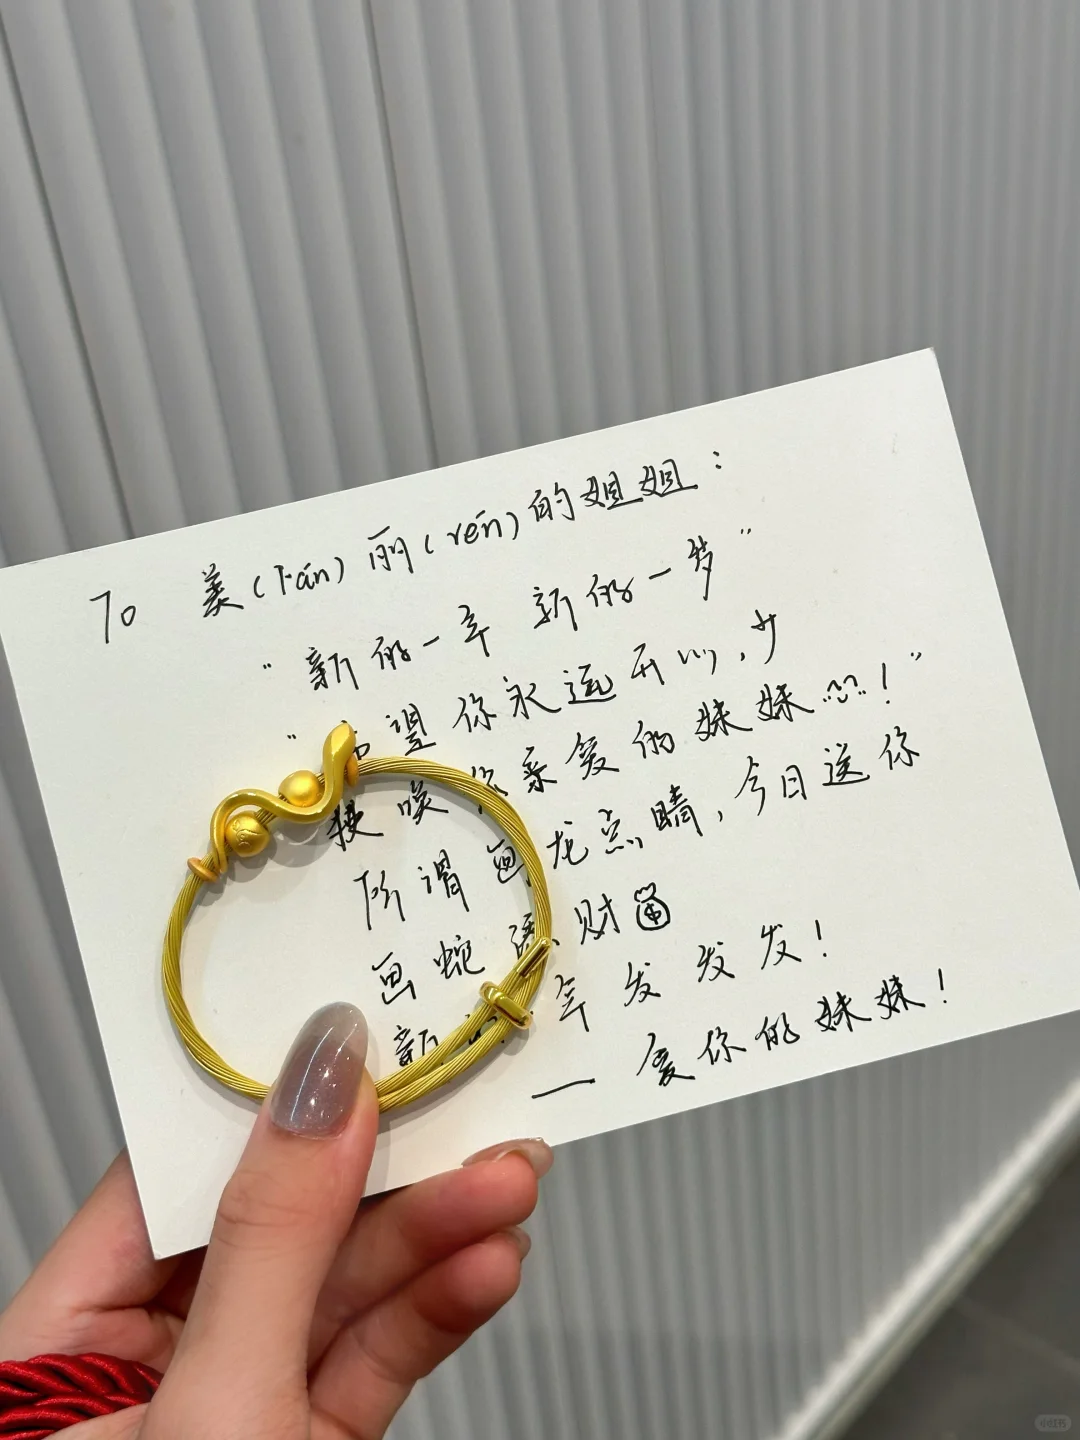 To 美(tān)丽(rén)的姐姐:
"新的一年 新的一岁"
"望你永远开心,少
揍你亲爱的妹妹!"
所谓画龙点睛,今日送你
画蛇添财
新年发发发!
—— 爱你的妹妹!
小红书